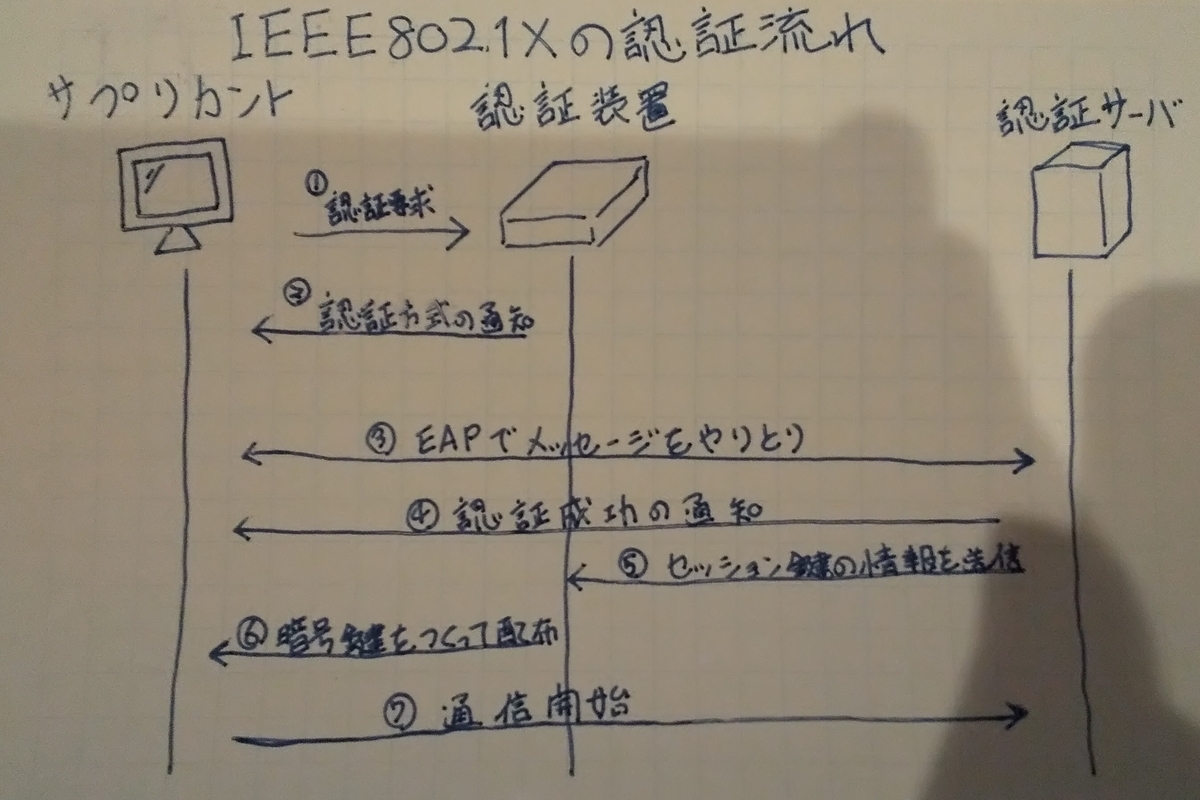 IEEE802.1Xの認証流れ
サプリカント
認証装置
認証サーバ
① 認証要求
② 認証方式の通知
③ EAPでメッセージをやりとり
④ 認証成功の通知
⑤ セッション鍵の情報を送信
⑥ 暗号鍵をつくって配布
⑦ 通信開始